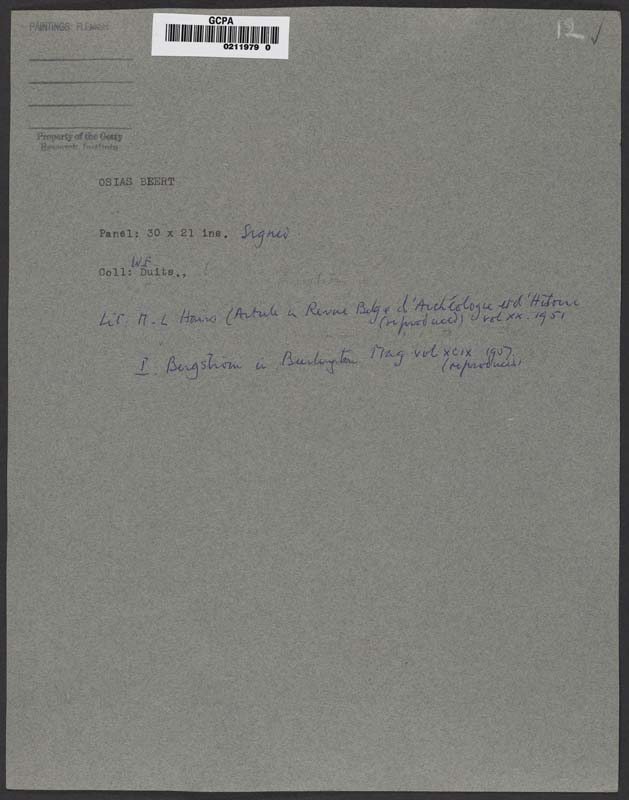 PAINTINGS: FLEMISH
GCPA
0211979 0
12 ✓
Property of the Getty
Research Institute
OSIAS BEERT
Panel: 30 x 21 ins. Signed
W.E.
Coll: Duits.,
Lit. M-L Hairs (Article in Revue Belge d'Archéologie et d'Histoire
(reproduced) vol XX. 1951
I. Bergstrom in Burlington Mag vol XCIX 1957
(reproduced)